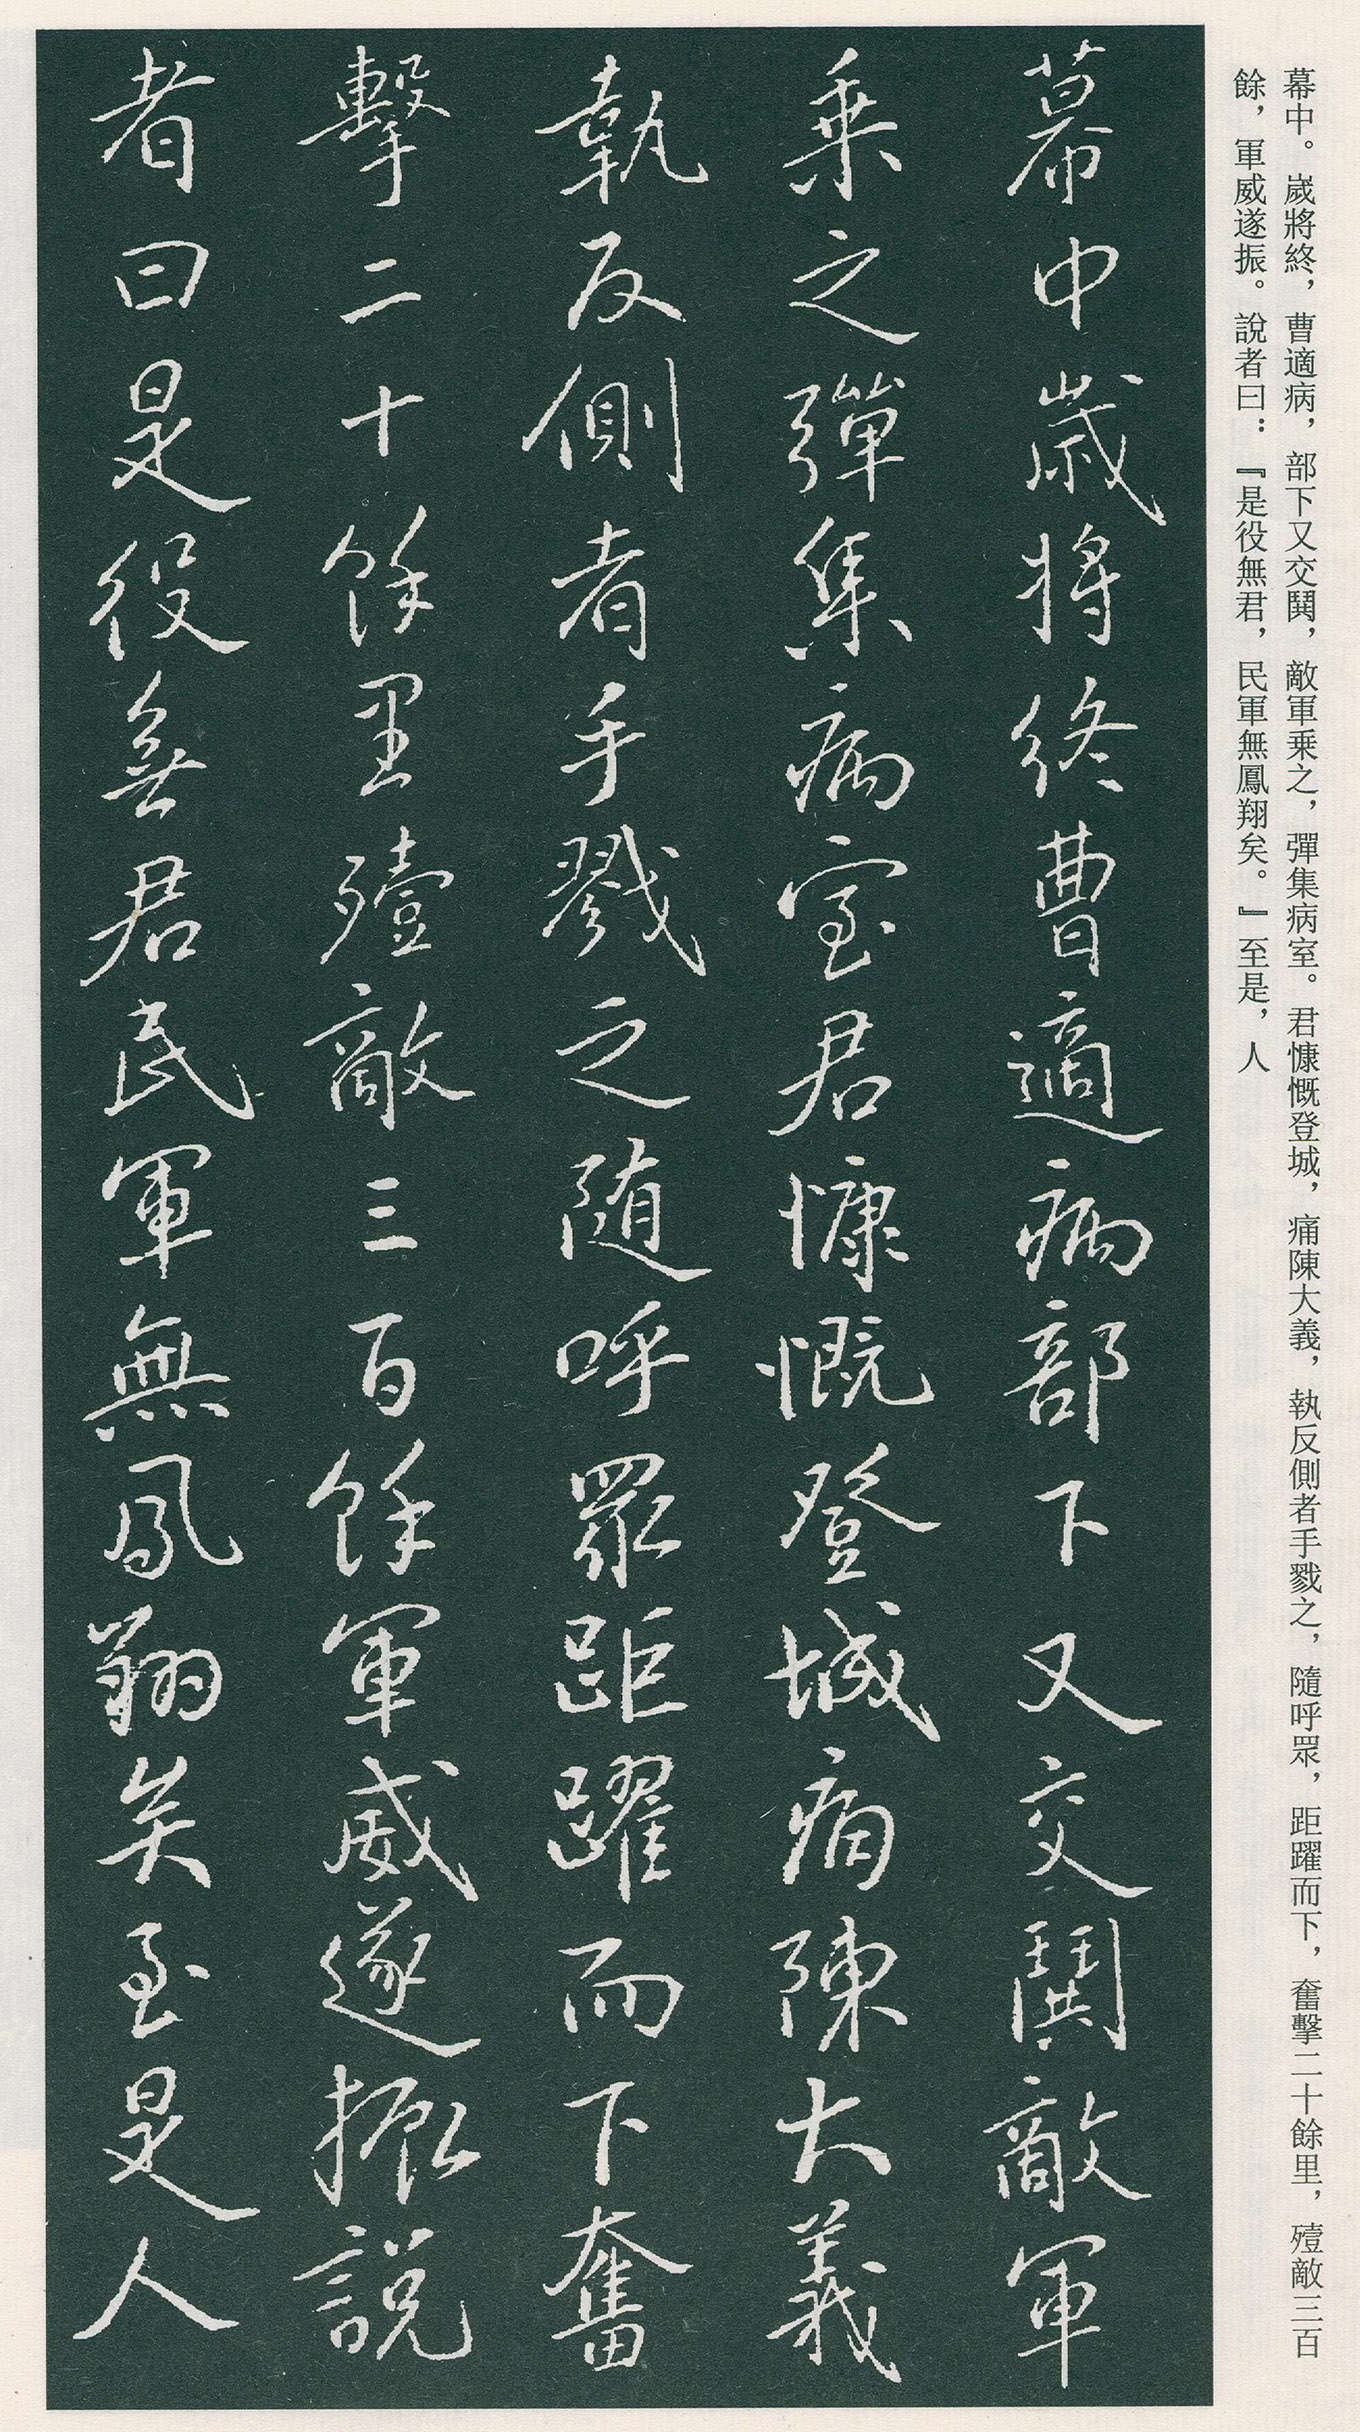 幕中。嵗將終，曹適病，部下又交鬨，敵軍乗之，彈集病室。君慷慨登城，痛陳大義，執反側者手戮之，隨呼眾，距躍而下，奮擊二十餘里，殪敵三百
餘，軍威遂振。說者曰：『是役無君，民軍無鳳翔矣。』至是，人
幕中嵗將終曹適病部下又交鬨敵軍
乗之彈集病室君慷慨登城痛陳大義
執反側者手戮之随呼眾距躍而下奮
擊二十餘里殪敵三百餘軍威遂振說
者曰是役無君民軍無鳳翔矣至是人